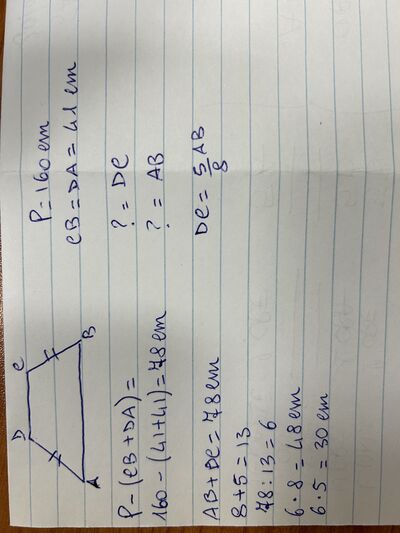 D C
A B
P = 160 cm
CB = DA = 41 cm
? = DC
? = AB
DC = 5/8 AB
P - (CB + DA) =
160 - (41 + 41) = 78 cm
AB + DC = 78 cm
8 + 5 = 13
78 : 13 = 6
6 · 8 = 48 cm
6 · 5 = 30 cm